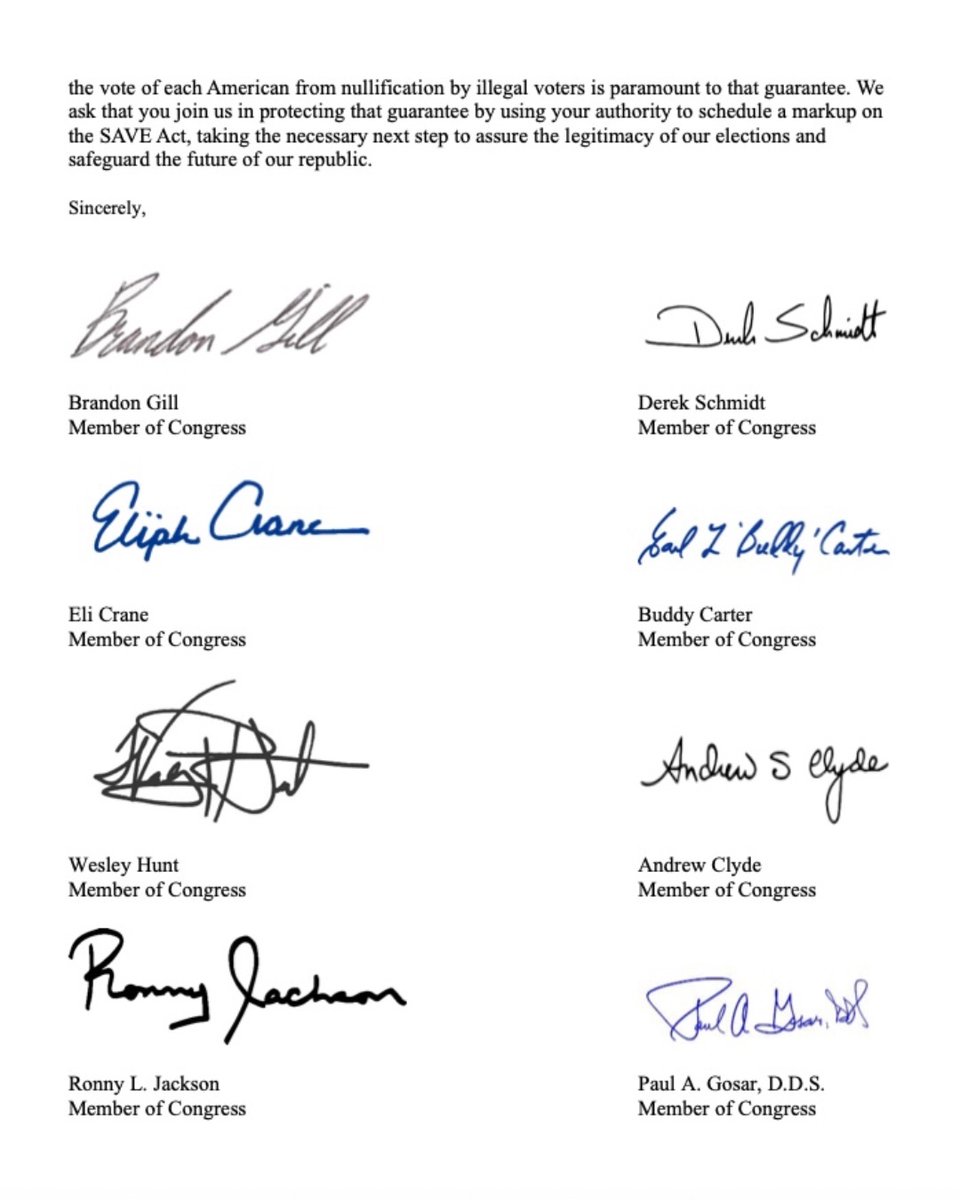 the vote of each American from nullification by illegal voters is paramount to that guarantee. We
ask that you join us in protecting that guarantee by using your authority to schedule a markup on
the SAVE Act, taking the necessary next step to assure the legitimacy of our elections and
safeguard the future of our republic.
Sincerely,
Brandon Gill
Derek Schmidt
Brandon Gill
Member of Congress
Derek Schmidt
Member of Congress
Elijah Crane
Earl L "Buddy" Carter
Eli Crane
Member of Congress
Buddy Carter
Member of Congress
Andrew S Clyde
Wesley Hunt
Member of Congress
Andrew Clyde
Member of Congress
Ronny Jackson
Paul A. Gosar, DDS
Ronny L. Jackson
Member of Congress
Paul A. Gosar, D.D.S.
Member of Congress